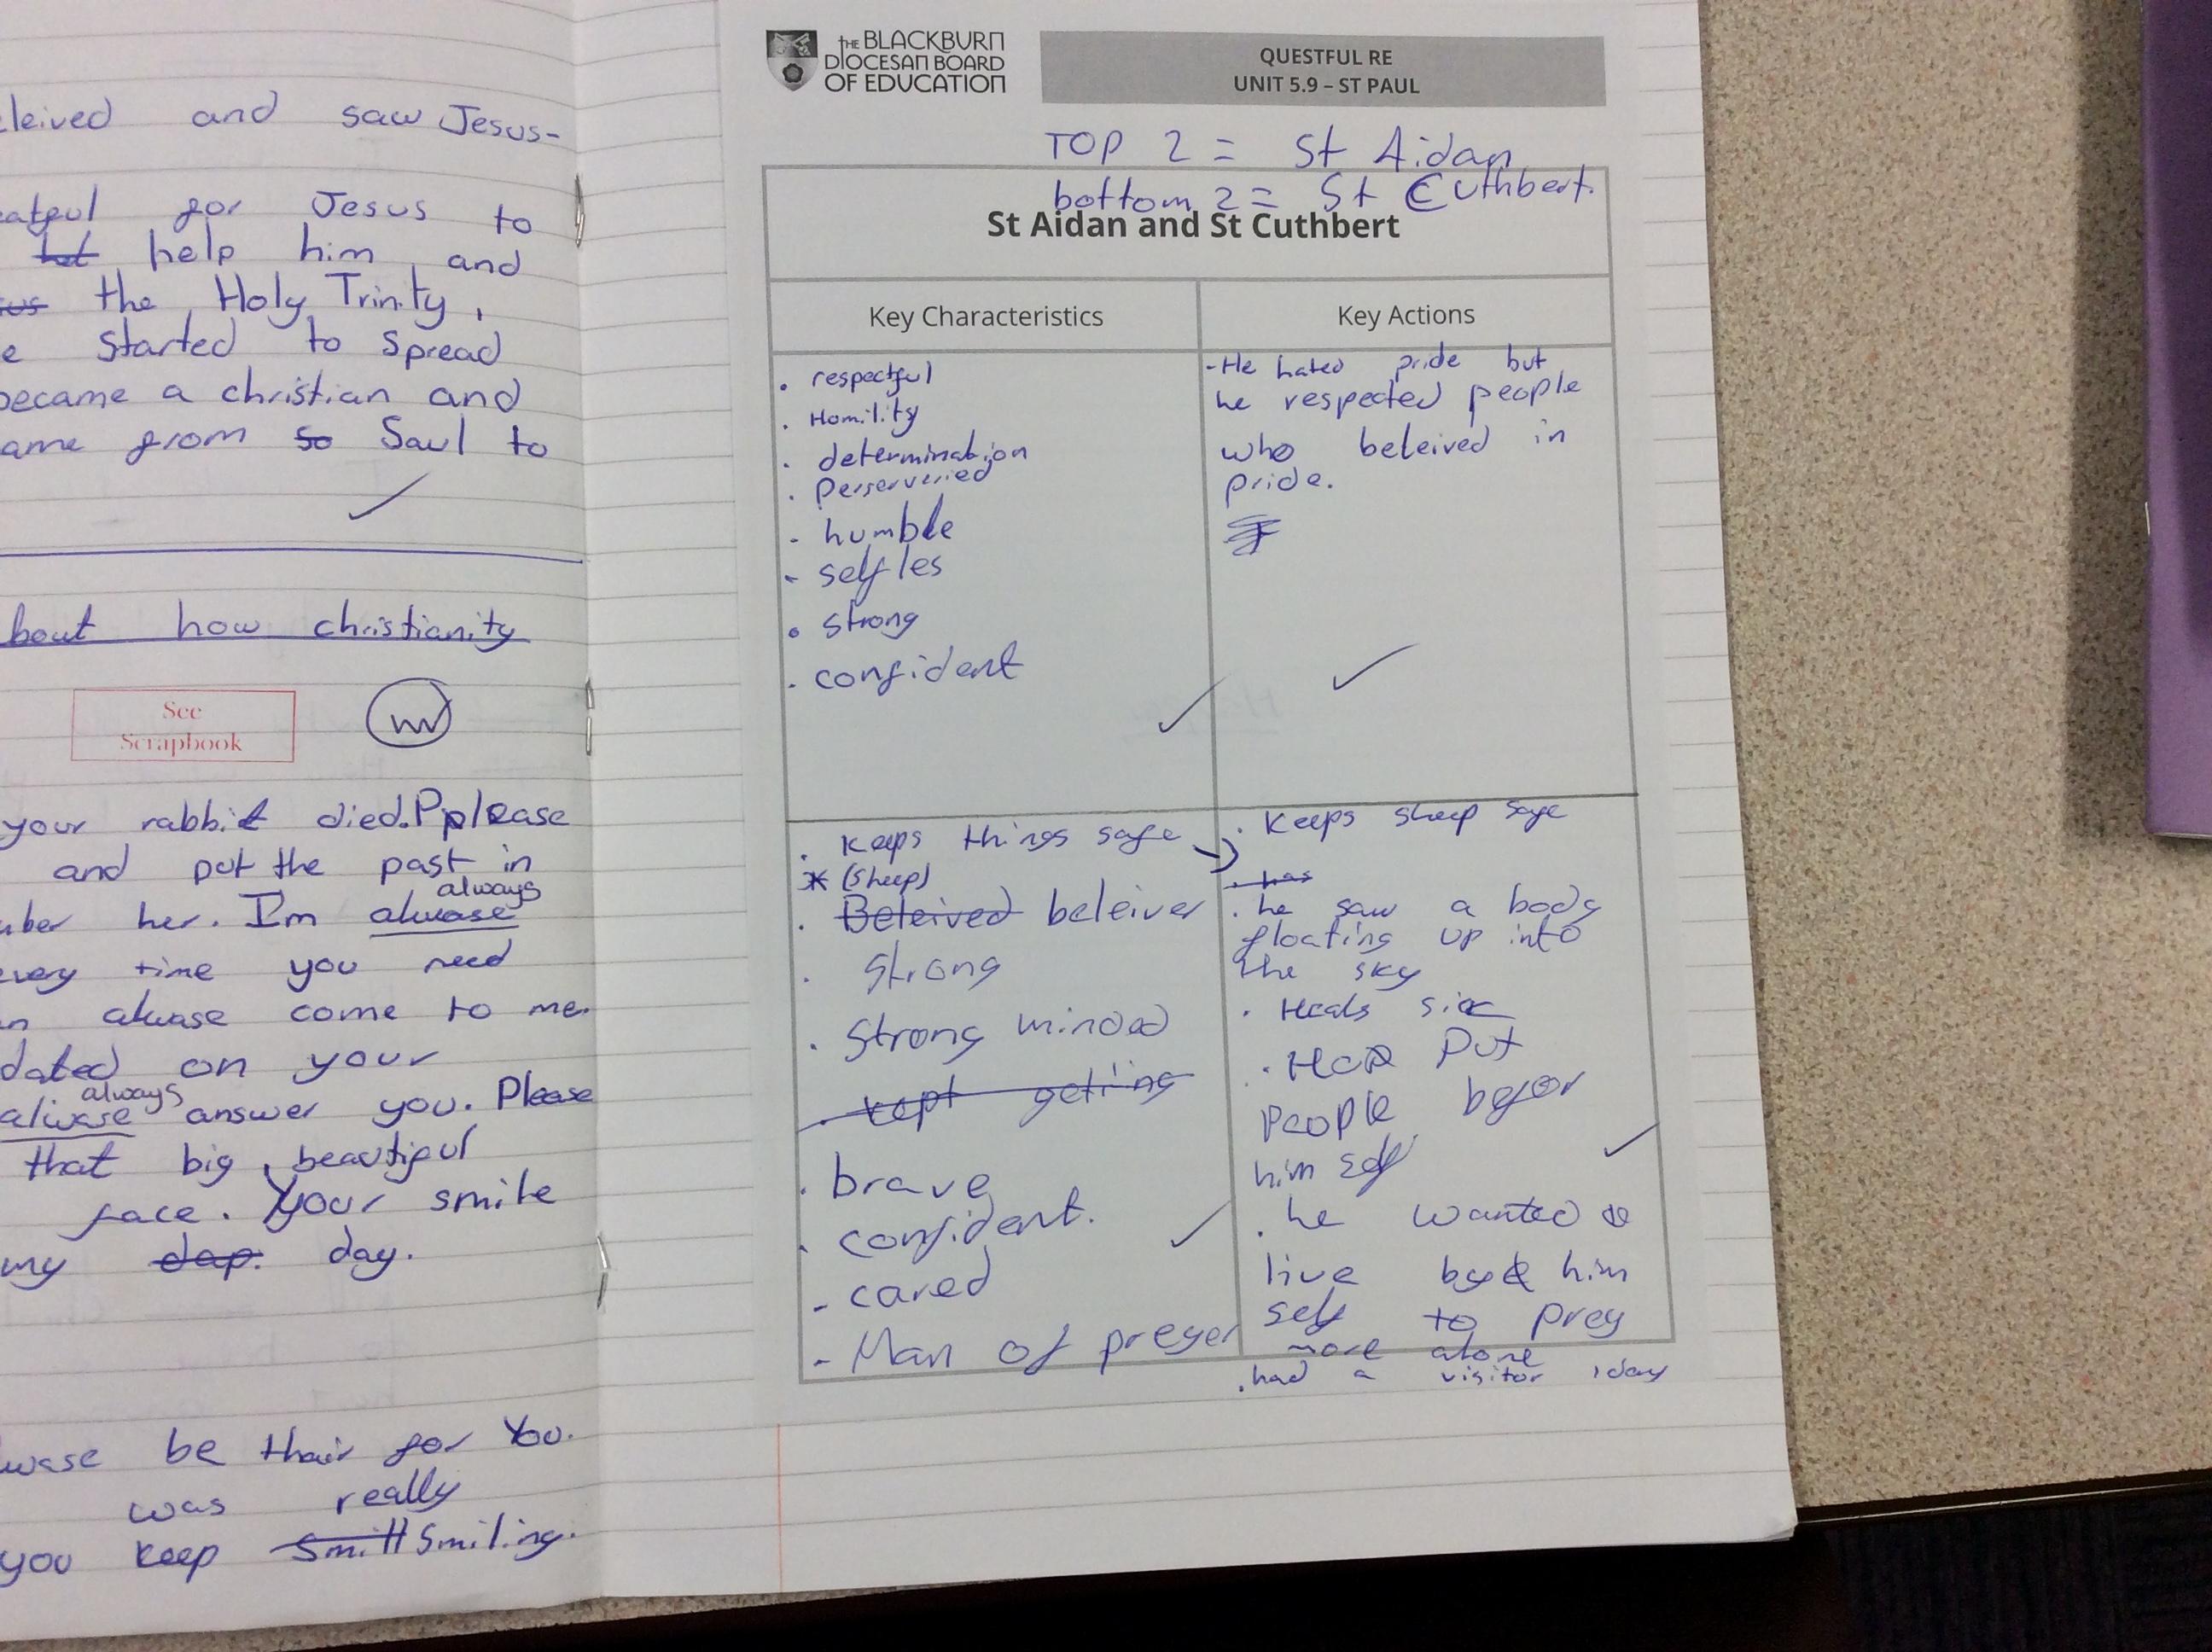 and saw Jesus-
for Jesus to
help him and
the Holy Trinity,
e started to spread
became a christian and
ame from so Saul to
bout how christianity
See
Scrapbook
your rabbit died. Please
and put the past in
always
her. I'm alwase
every time you need
alwase come to me.
dated on your
always
aliwase answer you. Please
that big, beautiful
face. Your smile
my dap. day.
wase be thair for You.
was really
you keep Smill Smiling.
THE BLACKBURN
DIOCESAN BOARD
OF EDUCATION
QUESTFUL RE
UNIT 5.9 – ST PAUL
TOP 2 = St Aidan
bottom 2 = St Cuthbert.
St Aidan and St Cuthbert
Key Characteristics
Key Actions
. respectful
. Homility
. determination
. Perserveried
- humble
- self les
. strong
. confident
- He hated pride but
he respected people
who beleived in
pride.
. keeps things safe
* (sheep)
. Beleived beleiver
. strong
. strong minded
. kept getting
. brave
. confident.
- cared
- Man of preyer
. keeps sheep safe
. has
. he saw a body
floating up into
the sky
. Heals sick
. Put
People befor
him self
. he wanted to
live by him
self to prey
more alone
. had a visitor 1 day